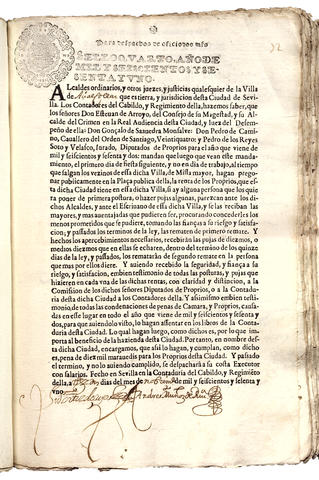 Para despachos de oficio dos mrs
SELLO QVARTO, AÑO DE
MIL Y SEISCIENTOS Y SE-
SENTA Y VNO.
32
ALcaldes ordinarios, y otros juezes, y justicias qualesquier de la Villa
de que es tierra, y jurisdicion desta Ciudad de Sevi-
lla. Los Contadores del Cabildo, y Regimiento della, hazemos saber, que
los señores Don Esteuan de Arroyo, del Consejo de su Magestad, y su Al-
calde del Crimen en la Real Audiencia desta Ciudad, y Iuez del Desem-
peño de ella: Don Gonçalo de Saauedra Monsalve: Don Pedro de Camino,
Cauallero del Orden de Santiago, Veintiquatro; y Pedro de los Reyes
Soto y Velasco, Iurado, Diputados de Proprios para el año que viene de
mil y seiscientos y sesenta y dos: mandan que luego que vean este manda-
miento, el primero dia de fiesta siguiente, y no en dia de trabajo, al tiempo
que salgan los vezinos de essa dicha Villa, de Missa mayor, hagan prego-
nar publicamente en la Plaça publica della, la renta de los Proprios, que es-
ta dicha Ciudad tiene en essa dicha Villa, si ay alguna persona que los quie-
ra poner de primera postura, ò hazer pujas algunas, parezcan ante los di-
chos Alcaldes, y ante el Escriuano de essa dicha Villa, y se las reciban las
mayores, y mas auentajadas que pudieren ser, procurando concederles los
menos prometidos que se pudiere, tomando las fianças à su riesgo, y satisfa-
cion, y passados los terminos de la ley, las rematen de primero remate. Y
hechos los apercebimientos necessarios, recebiràn las pujas de diezmos, ò
medios diezmos que en ellas se echaren, dentro del termino de los quinze
dias de la ley, y passados, los rematarán de segundo remate en la persona
que mas por ellos diere. Y auiendo recebido la seguridad, y fiança à su
riesgo, y satisfacion, embien testimonio de todas las posturas, y pujas que
hizieren en cada vna de las dichas rentas, con claridad, y distincion, a la
Comission de los dichos señores Diputados de Proprios, ò a la Contadu-
ria desta dicha Ciudad a los Contadores della. Y assimismo embien testimo-
nio de todas las condenaciones de penas de Camara, y Proprios, causa-
das en esse lugar en todo el año que viene de mil y seiscientos y sesenta y
dos, para que auiendolo visto, lo hagan assentar en los libros de la Conta-
duria desta Ciudad. Lo qual hagan luego, como dichos es, por lo que im-
porta al beneficio de la hazienda desta Ciudad. Portanto, en nombre des-
ta dicha Ciudad, encargamos, que assi lo hagan, y cumplan, como dicho
es, pena de diez mil marauedis para los Proprios desta Ciudad. Y passado
el termino, y no lo auiendo cumplido, se despacharà a su costa Executor
con salarios. Fecho en Sevilla en la Contaduria del Cabildo, y Regimiẽto
della, a dias del mes de de mil y seiscientos y sesenta y
vno.